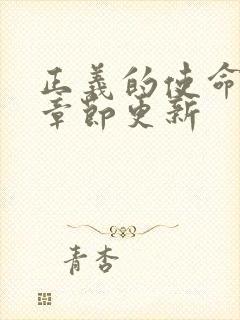 正義的使命
章節更新
青杏